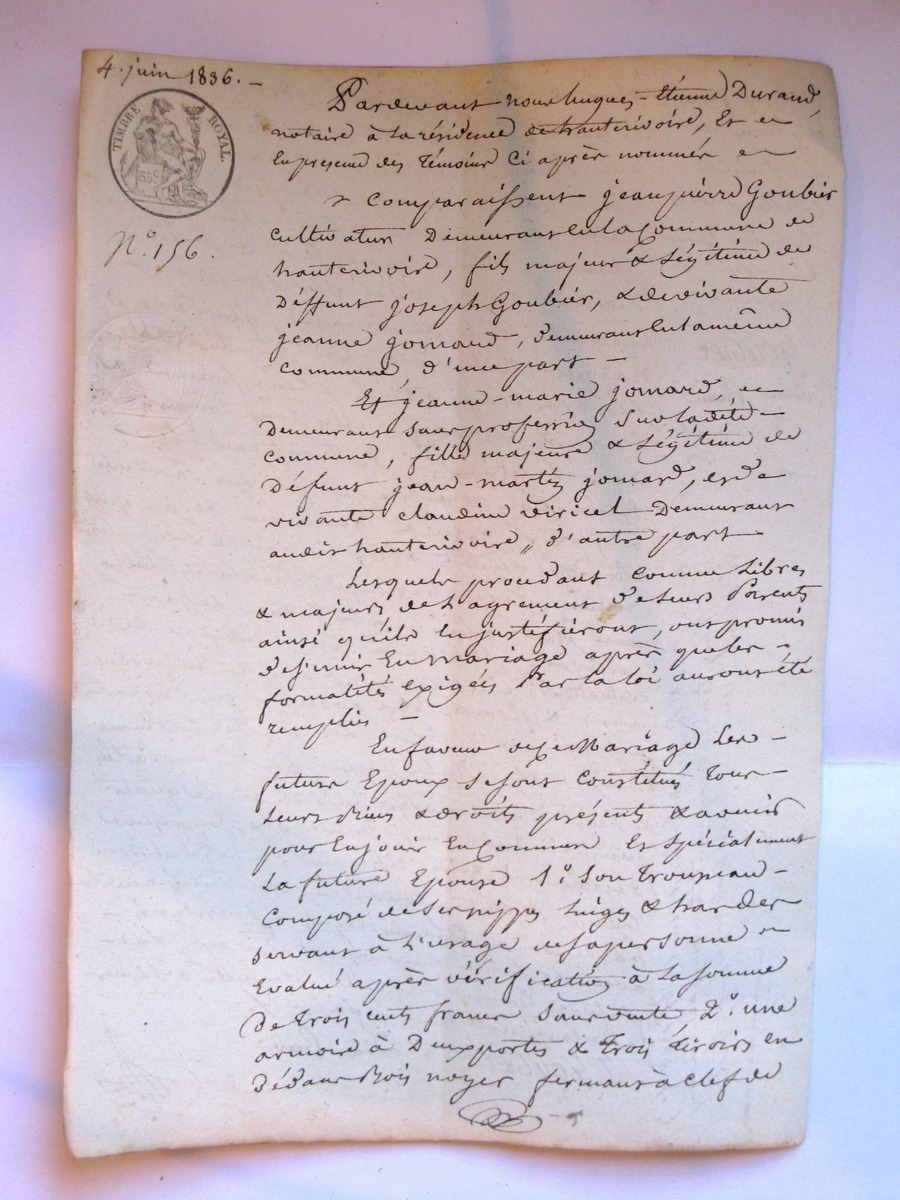 4. juin 1836. -
TIMBRE ROYAL.
N.° 156.
Pardevant nous hugues-Etienne Durand,
notaire à la résidence de hauterivoire, Et en
En présence des témoins Ci après nommés
Comparaissent jean pierre Goubier
cultivateur Demeurant En la Commune de
hauterivoire, fils majeur & Légitime de
Deffunt joseph Goubier, & de vivante
jeanne jomard, demeurant En la même
Commune, d'une part -
Et jeanne-marie jomard,
Demeurant sans profession sur ladite
Commune, fille majeure & Légitime de
Défunt jean-martin jomard, et de
vivante claudine viricel Demeurant
audit hauterivoire, d'autre part
Lesquels procédant comme Libres
& majeurs de L'agrement de Leurs Parents
ainsi qu'ils En justifieront, ont promis
de s'unir En mariage après que les -
formalités exigées Par la loi auront été
remplies -
En faveur de ce Mariage Les -
future Epoux se sont Constitués Tous -
Leurs Biens & droits présents & avenir
pour En jouir En Commun Et spécialement
La future Epouse 1.° Son Trousseau -
Composé de ses nippes Linges & hardes
servant à L'usage de sa personne
Evalué après vérification à La somme
De trois cents francs sans vente 2.° une
armoire à Deux portes & trois tiroirs en
dedans Bois noyer fermant à clef de